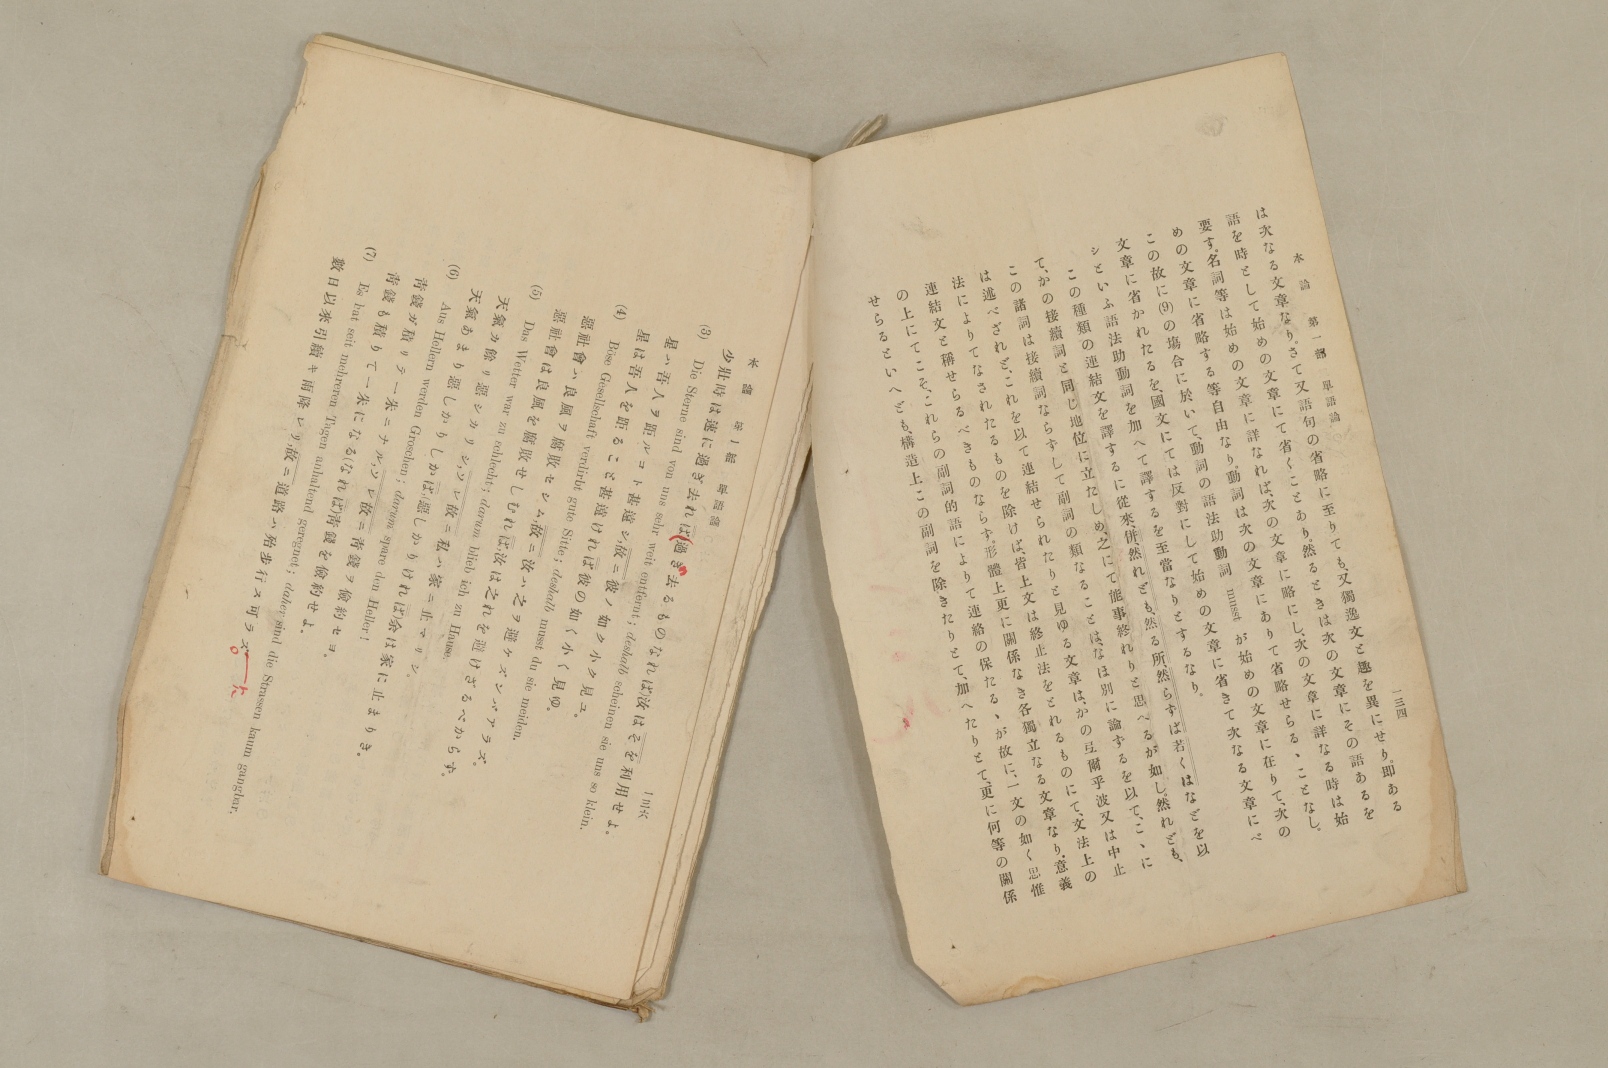 本論 第一部 單語論
一三四
は次なる文章なり。さて又語句の省略に至りても、又獨逸文と趣を異にせり。即ある
語を時として始めの文章にて省くことあり、然るときは次の文章にその語あるを
要す。名詞等は始めの文章に詳なれば、次の文章に略にし、次の文章に詳なる時は始
めの文章に省略する等自由なり。動詞は次の文章にありて省略せらるゝことなし。
この故に(9)の塲合に於いて、動詞の語法助動詞 must が始めの文章に在りて、次の
文章に省かれたるを、國文にては反對にして始めの文章に省きて次なる文章にベ
シといふ語法助動詞を加へて譯するを至當なりとするなり。
この種類の連結文を譯するに從來、併、然れども、然る所、然らずは若くはなどを以
て、かの接續詞と同じ地位に立たしめ、之にて能事終れりと思へるが如し。然れども、
この諸詞は接續詞ならずして副詞の類なることは、なほ別に論ずるを以て、こゝに
は述べざれど、これを以て連結せられたりと見ゆる文章は、かの弖爾乎波又は中止
法によりてなされたるものを除けば、皆上文は終止法をとれるものにて、文法上の
連結文と稱せらるべきものならず。形體上更に關係なき各獨立なる文章なり。意義
の上にてこそ、これらの副詞的語によりて連絡の保たるゝが故に、一文の如く思惟
せらるといへども、構造上この副詞を除きたりとて、加へたりとて、更に何等の關係
本論 第一部 單語論
一三六
少壯時は速に過ぎ去れば(過ぎ去るものなれば)汝はそを利用せよ。
(3) Die Sterne sind von uns sehr weit entfernt; deshalb scheinen sie uns so klein.
星ハ吾人ヲ距ルコト甚遠シ、故ニ彼ノ如ク小ク見ユ。
星は吾人を距ること甚遠ければ彼の如く小く見ゆ。
(4) Böse Gesellschaft verdirbt gute Sitte; deshalb musst du sie meiden.
惡社會ハ良風ヲ腐敗セシム、故ニ汝ハ之ヲ避ケズンバアラズ。
惡社會は良風を腐敗せしむれば、汝は之れを避けざるべからず。
(5) Das Wetter war zu schlecht; darum blieb ich zu Hause.
天氣カ餘リ惡シカリシ、ソレ故ニ私ハ家ニ止マリシ。
天氣あまり惡しかりしかば、(惡しかりければ)余は家に止まりき。
(6) Aus Hellern werden Groschen; darum spare den Heller!
靑錢ガ積リテ一朱ニナル、ソレ故ニ靑錢ヲ儉約セヨ。
靑錢も積りて一朱になる(なれば)靑錢を儉約せよ。
(7) Es hat seit mehreren Tagen anhaltend geregnet; daher sind die Strassen kaum gangbar.
數日以來引續キ雨降レリ、故ニ道路ハ殆歩行ス可ラズ。
た